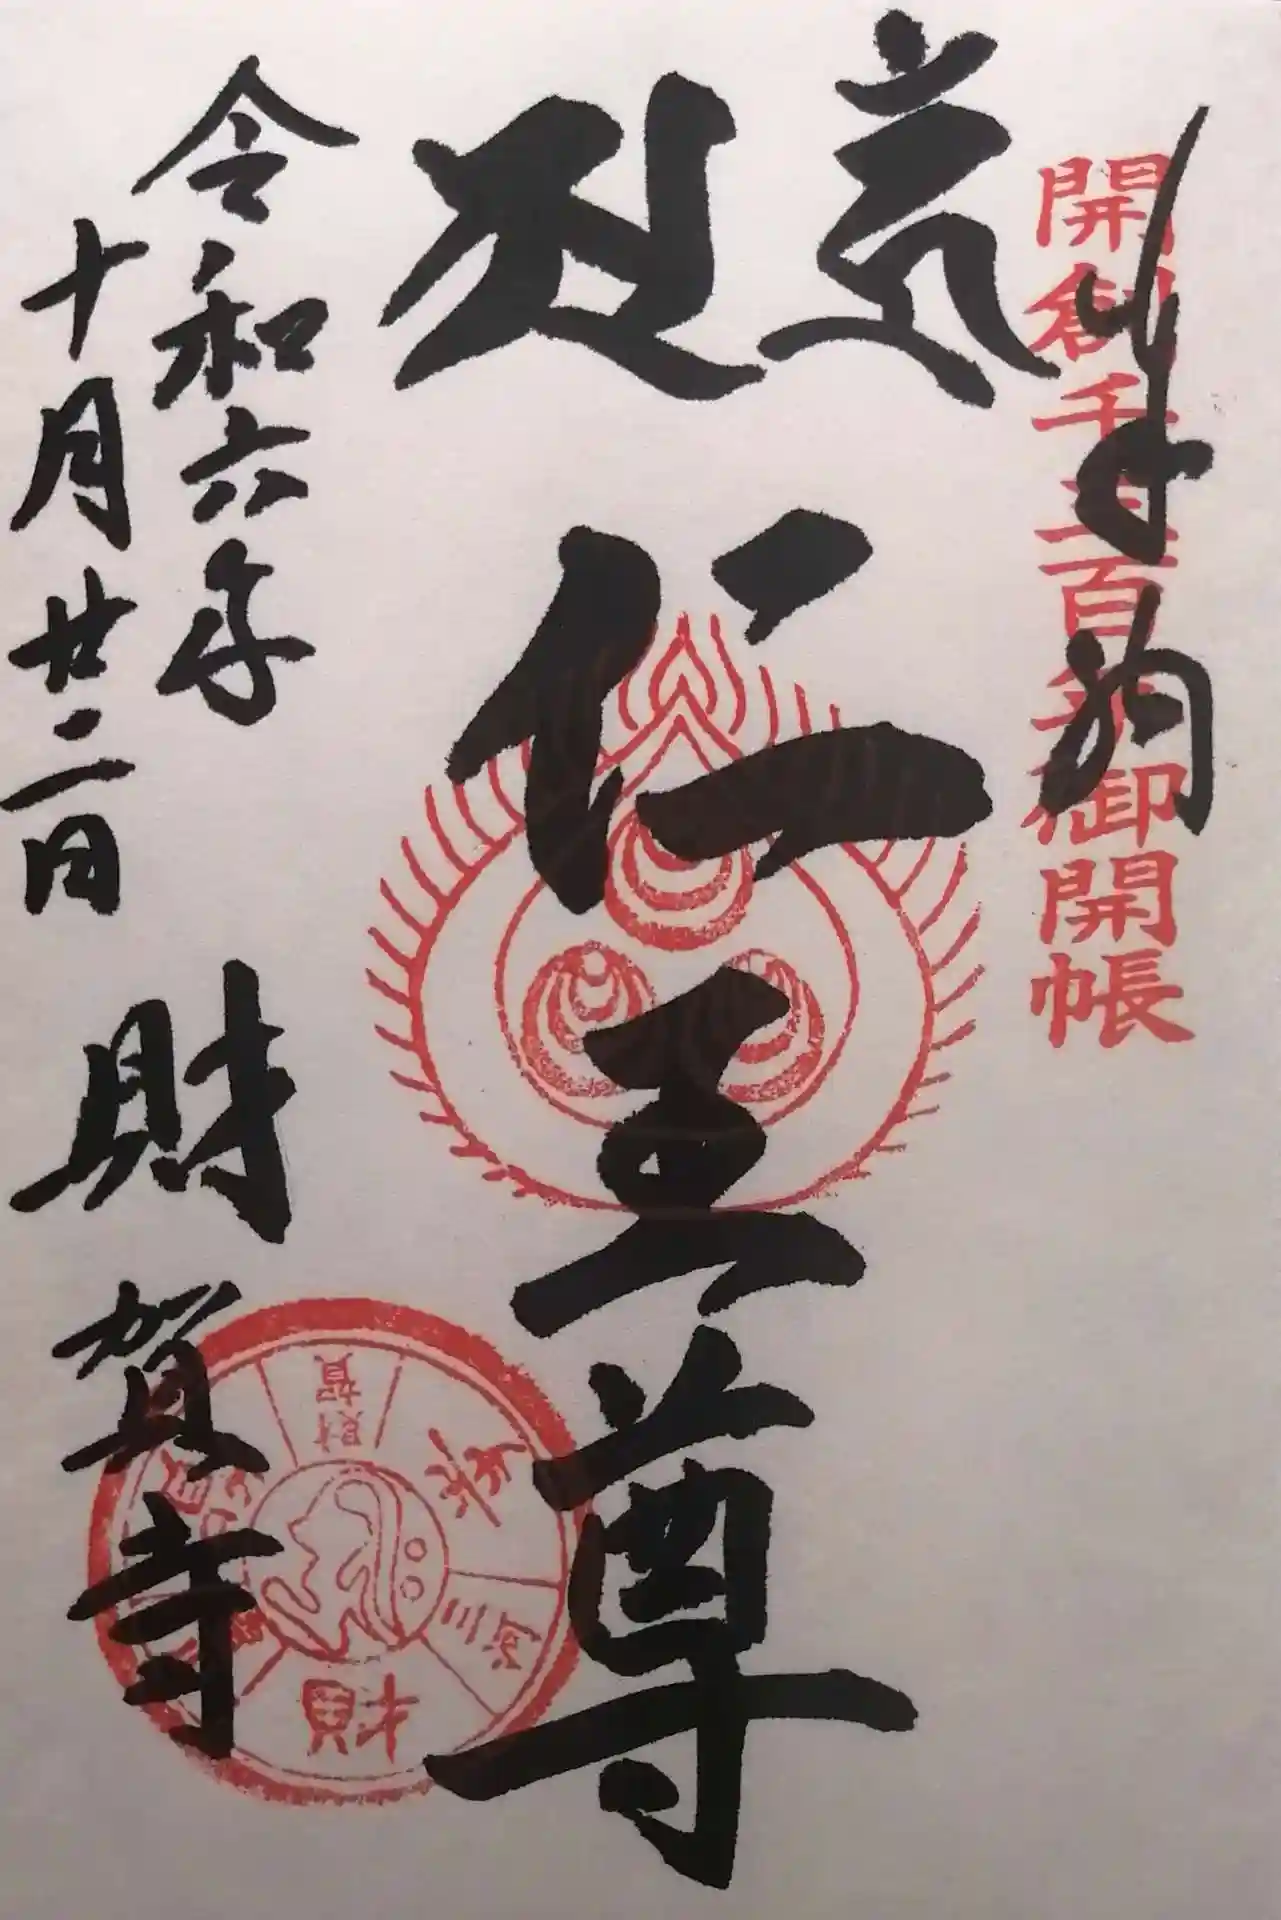 開創千三百年御開帳
仁王尊
令和六年
十月廿二日
財賀寺
財賀
三河
財